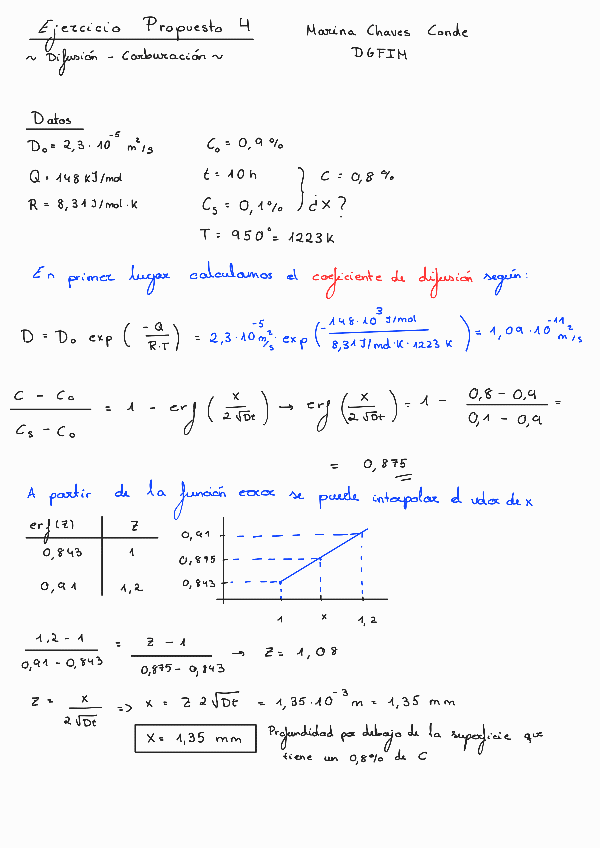 Ejercicio Propuesto 4
Marina Chaves Conde
~ Difusión - Carburación ~
DGFIM
Datos
D₀ = 2,3 · 10⁻⁵ m²/s
C₀ = 0,9 %
Q = 148 kJ/mol
t = 10 h
C = 0,8 %
R = 8,31 J/mol·K
Cs = 0,1 %
¿X?
T = 950° = 1223 K
En primer lugar calculamos el coeficiente de difusión según:
D = D₀ exp ( -Q / R·T ) = 2,3·10⁻⁵ m²/s · exp ( -148·10³ J/mol / 8,31 J/mol·K · 1223 K ) = 1,09·10⁻¹¹ m²/s
C - C₀ / Cs - C₀ = 1 - erf ( x / 2√Dt ) → erf ( x / 2√Dt ) = 1 - 0,8 - 0,9 / 0,1 - 0,9 =
= 0,875
A partir de la función error se puede interpolar el valor de x
erf(Z) Z
0,843 1
0,91 1,2
0,91
0,875
0,843
1 x 1,2
1,2 - 1 / 0,91 - 0,843 = Z - 1 / 0,875 - 0,843 → Z = 1,08
Z = x / 2√Dt => x = Z 2√Dt = 1,35·10⁻³ m = 1,35 mm
X = 1,35 mm
Profundidad por debajo de la superficie que
tiene un 0,8% de C